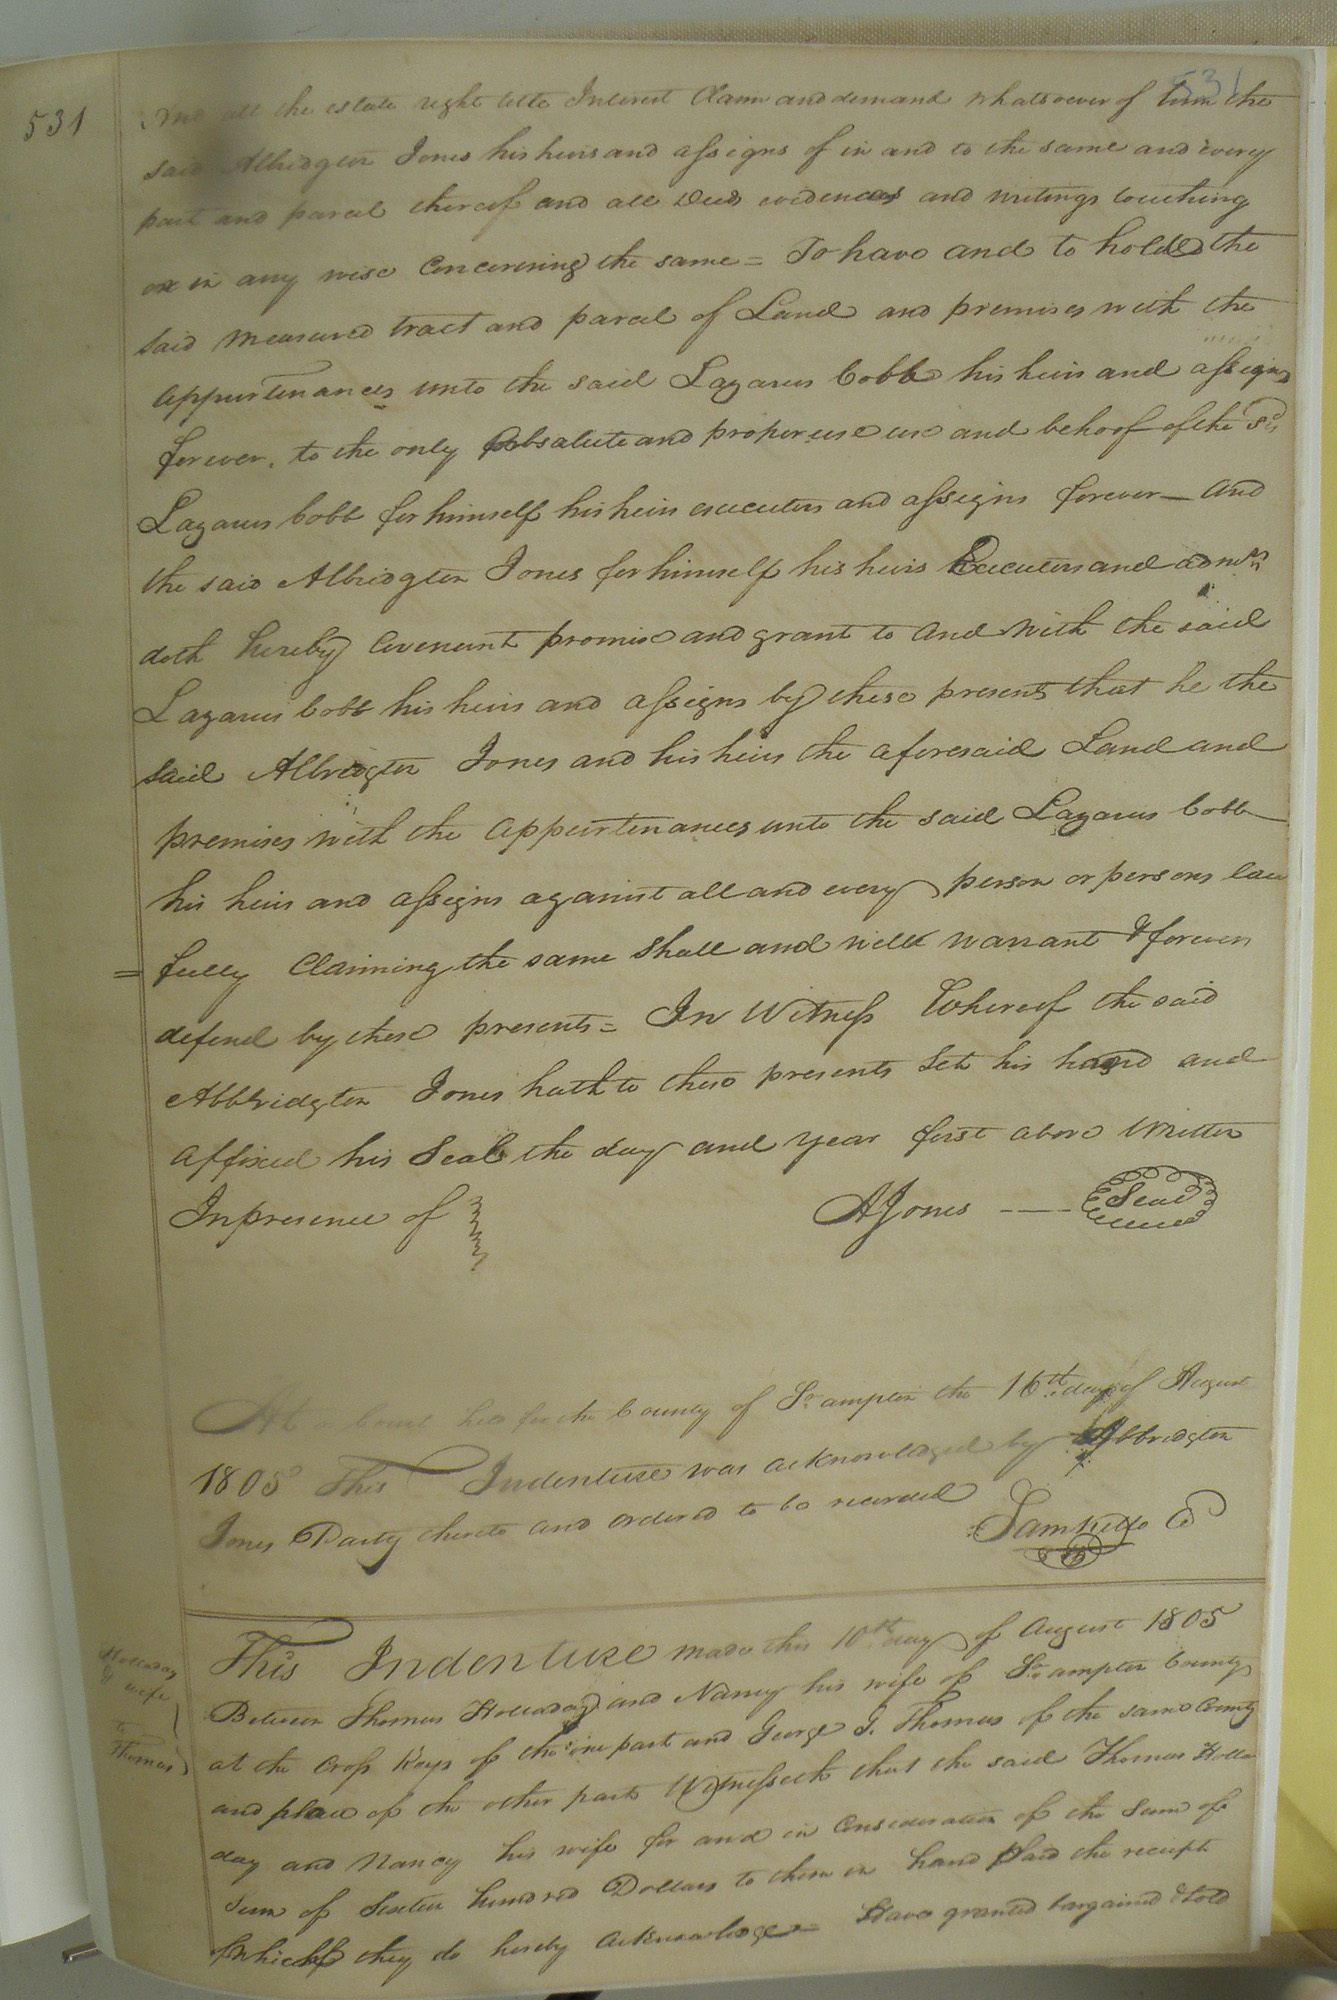 531
531
And all the estate right title Interest Claim and demand whatsoever of him the
said Albridgton Jones his heirs and assigns of in and to the same and every
part and parcel thereof and all Deeds evidences and writings touching
or in any wise Concerning the same = To have and to hold the
said measured tract and parcel of Land and premises with the
appurtenances unto the said Lazarus Cobb his heirs and assigns
forever. to the only absalute and proper use use and behoof of the sd
Lazarus Cobb for himself his heirs executors and assigns forever — and
the said Albridgton Jones for himself his heirs Executors and admrs
doth hereby Covenant promise and grant to and with the said
Lazarus Cobb his heirs and assigns by these presents that he the
said Albridgton Jones and his heirs the aforesaid Land and
premises with the appurtenances unto the said Lazarus Cobb
his heirs and assigns against all and every person or persons law
= fully Claiming the same shall and will warrant & forever
defend by these presents = In Witness Whereof the said
Abbridgton Jones hath to these presents Set his hand and
affixed his Seal the day and year first above Written
In presence of
AJones ---- Seal
At a Court held for the County of So ampton the 16th day of August
1805 This Indenture was acknowledged by Abbridgton
Jones Party thereto and ordered to be recorded
Sam Kello C
Holladay
& wife
to
Thomas
This Indenture made this 10th day of August 1805
Between Thomas Holladay and Nancy his wife of So ampton County
at the Cross Keys of the one part and George J. Thomas of the same County
and place of the other part Witnesseth that the said Thomas Holla
day and Nancy his wife for and in Consideration of the Sum of
Sum of Sixteen hundred Dollars to them in hand paid the receipt
Which of they do hereby acknowledge = Have granted bargained & sold